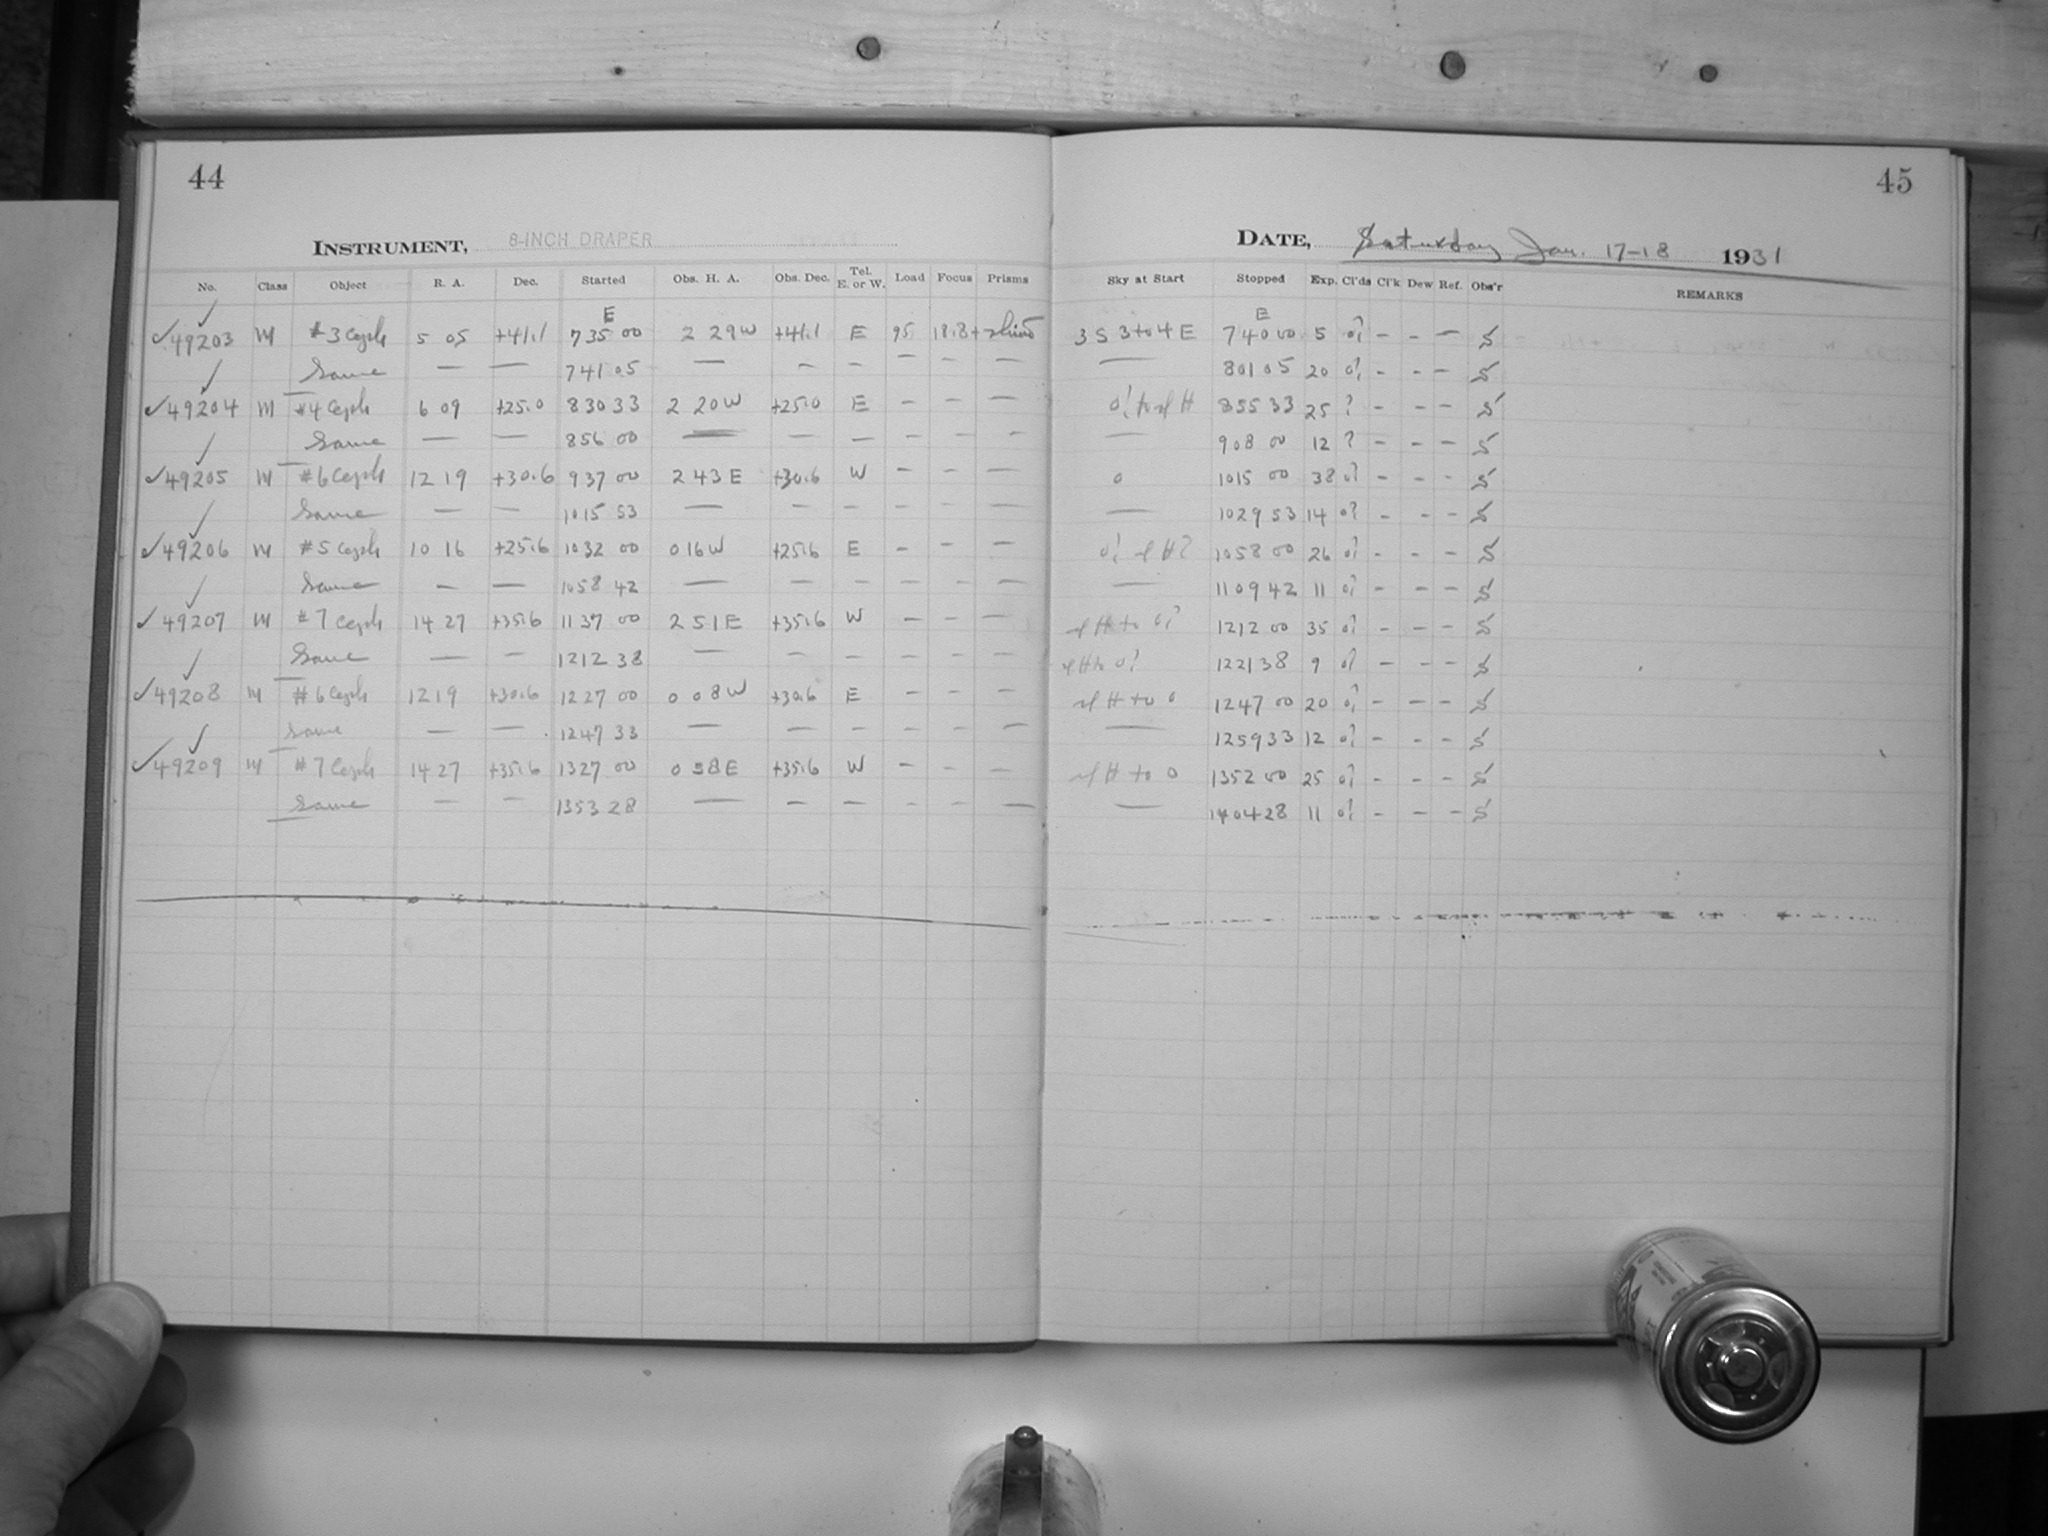 44
45
INSTRUMENT, 8-INCH DRAPER
DATE, Saturday Jan. 17-18 1931
No. Class Object R. A. Dec. Started Obs. H. A. Obs. Dec. Tel. E. or W. Load Focus Prisms Sky at Start Stopped Exp. Cl'ds Cl'k Dew Ref. Obs'r REMARKS
E E
✓49203 M #3 Ceph 5 05 +41.1 735 00 2 29W +41.1 E 95 18.8+ 3 S 3 to 4 E 740 00 5 0? - - - S
Same — — 741 05 — - - - - — — 801 05 20 0? - - - S
✓49204 M #4 Ceph 6 09 +25.0 830 33 2 20W +25.0 E - - - 855 33 25 ? - - - S
Same — — 856 00 — — - - - - — 908 00 12 ? - - - S
✓49205 M #6 Ceph 12 19 +30.6 937 00 2 43 E +30.6 W - - - 0 1015 00 38 0? - - - S
Same — — 1015 53 — - - - - — — 1029 53 14 0? - - - S
✓49206 M #5 Ceph 10 16 +25.6 1032 00 0 16W +25.6 E - - - 1058 00 26 0? - - - S
Same — — 1058 42 — — - - - — — 1109 42 11 0? - - - S
✓49207 M #7 Ceph 14 27 +35.6 1137 00 2 51 E +35.6 W - - - 1212 00 35 0? - - - S
Same — — 1212 38 — - - - - - 1221 38 9 0? - - - S
✓49208 M #6 Ceph 12 19 +30.6 1227 00 0 08W +30.6 E - - - 1247 00 20 0? - - - S
Same — — 1247 33 — - - - - - — 1259 33 12 0? - - - S
✓49209 M #7 Ceph 14 27 +35.6 1327 00 0 58 E +35.6 W - - - 1352 00 25 0? - - - S
Same — — 1353 28 — - - - - — — 1404 28 11 0? - - - S